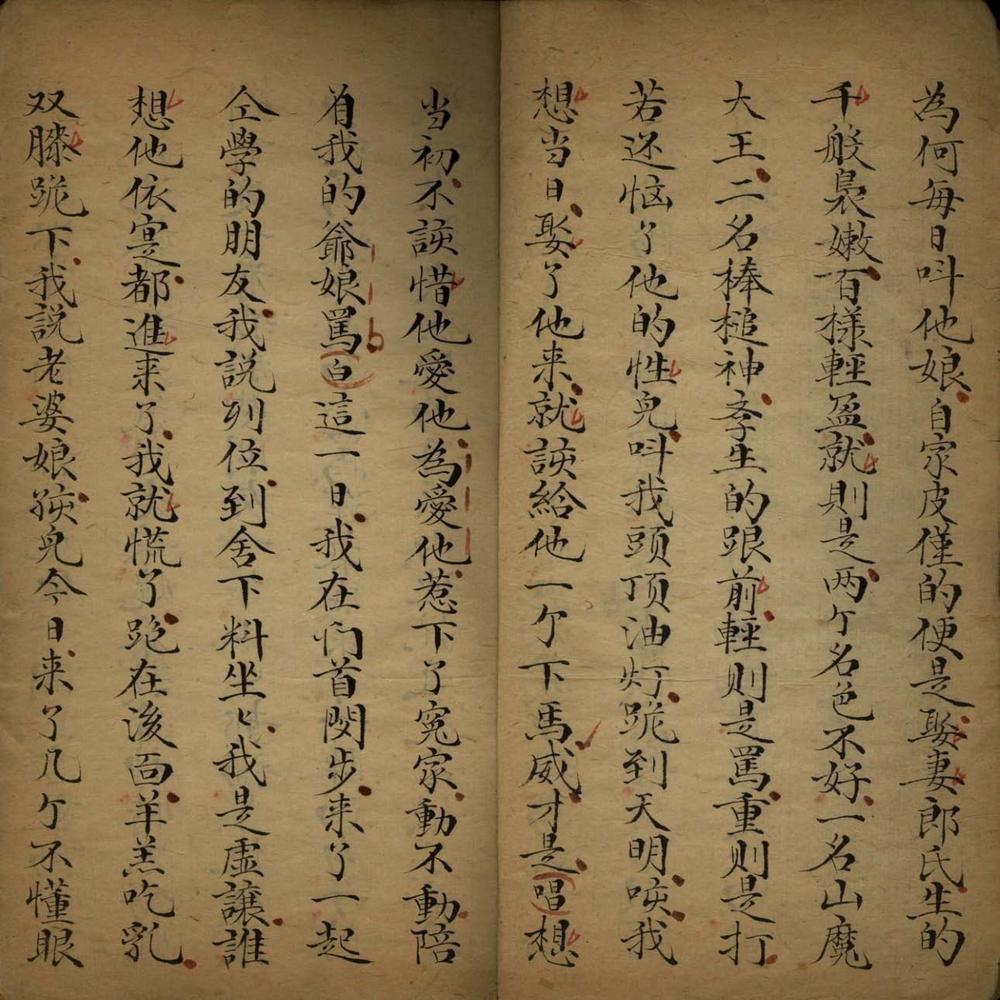 為何每日呌他娘自家皮僅的便是娶妻郎氏生的
千般裊嫩百樣輕盈就則是两个名色不好一名山魔
大王二名棒槌神李生的跟前輕則是罵重則是打
若还惱了他的性兒呌我頭顶油灯跪到天明唉我
想当日娶了他来就該給他一个下馬威才是唱想
当初不該惜他愛他為愛他惹下了寃家動不動陪
着我的爺娘罵白這一日我在门首閔步来了一起
仝學的朋友我説列位到舍下料坐々我是虛讓誰
想他依寔都進来了我就慌了跪在後面羊羔吃乳
双膝跪下我説老婆娘孩兒今日来了几个不懂眼